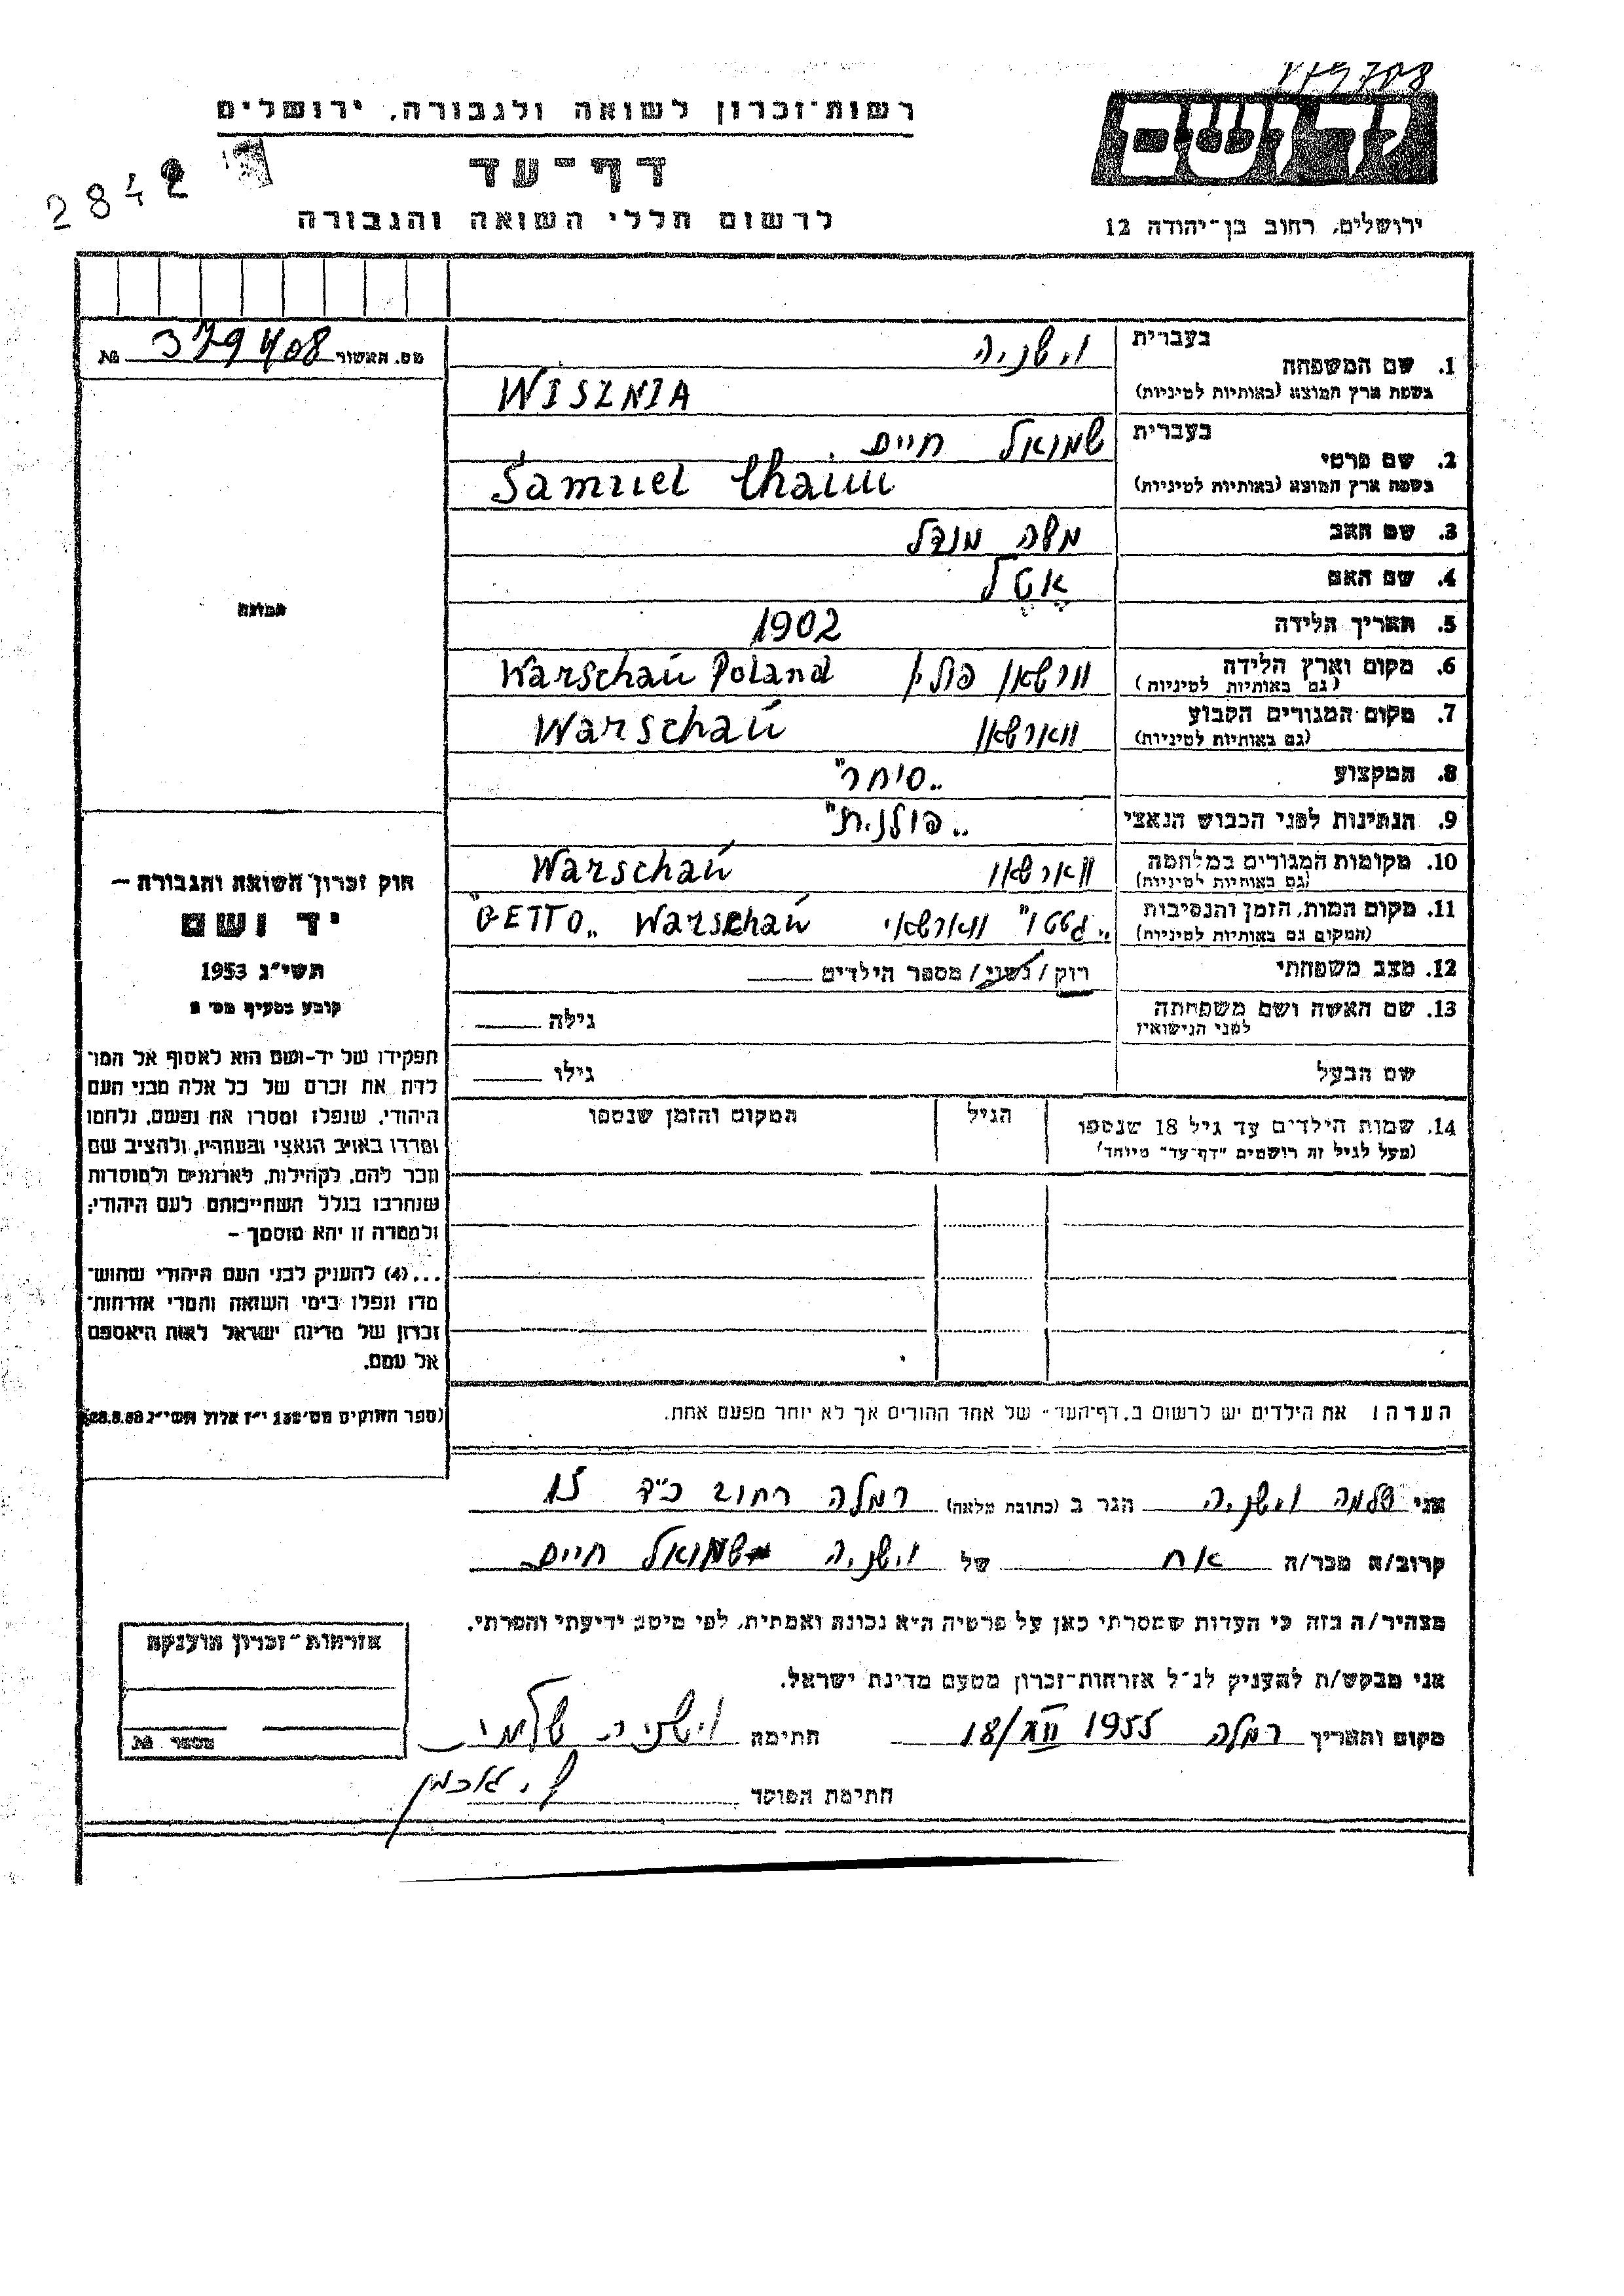 רשות־זכרון לשואה ולגבורה, ירושלים
דף־עד
לרשום חללי השואה והגבורה
ירושלים, רחוב בן־יהודה 12
2842
מס. האשור
№
בעברית
וישניה
1. שם המשפחה
בשפת ארץ המוצא (באותיות לטיניות)
WISZNIA
בעברית
שמואל חיים
2. שם פרטי
בשפת ארץ המוצא (באותיות לטיניות)
Samuel Chaim
3. שם האב
משה מנדל
4. שם האם
אטל
5. תאריך הלידה
1902
6. מקום וארץ הלידה
(גם באותיות לטיניות)
ורשאו פולין Warschau Poland
7. מקום המגורים הקבוע
(גם באותיות לטיניות)
ווארשאו Warschau
8. המקצוע
„סוחר"
9. הנתינות לפני הכבוש הנאצי
„פולנית"
10. מקומות המגורים במלחמה
(גם באותיות לטיניות)
ווארשאו Warschau
11. מקום המות, הזמן והנסיבות
(המקום גם באותיות לטיניות)
„גטטו" ווארשאוי Warschau „GETTO"
12. מצב משפחתי
רוק / נשוי / מספר הילדים
13. שם האשה ושם משפחתה
לפני הנישואין
גילה
שם הבעל
גילו
14. שמות הילדים עד גיל 18 שנספו
(מעל לגיל זה רושמים "דף־עד" מיוחד)
הגיל
המקום והזמן שנספו
תמונה
חוק זכרון השואה והגבורה –
יד ושם
תשי"ג 1953
קובע בסעיף מס׳ 2
תפקידו של יד-ושם הוא לאסוף אל המו־
לדת את זכרם של כל אלה מבני העם
היהודי, שנפלו ומסרו את נפשם, נלחמו
ומרדו באויב הנאצי ובעוזריו, ולהציב שם
וזכר להם, לקהילות, לארגונים ולמוסדות
שנחרבו בגלל השתייכותם לעם היהודי;
ולמטרה זו יהא מוסמך –
...(4) להעניק לבני העם היהודי שהוש־
מדו ונפלו בימי השואה והמרי אזרחות־
זכרון של מדינת ישראל לאות היאספם
אל עמם.
(ספר החוקים מס׳ 132 י"ז אלול תשי"ג
הערה: את הילדים יש לרשום ב„דף־העד" של אחד ההורים אך לא יותר מפעם אחת.
אני שלמה וישניה הגר ב (כתובת מלאה) רמלה רחוב כ״ד 15
קרוב/ה מכר/ה אח של וישניה שמואל חיים
מצהיר/ה בזה כי העדות שמסרתי כאן על פרטיה היא נכונה ואמתית, לפי מיטב ידיעתי והכרתי.
אני מבקש/ת להעניק לנ"ל אזרחות־זכרון מטעם מדינת ישראל.
מקום ותאריך רמלה 18/XII 1955 חתימה וישניה שלמה
חתימת הפוקד
אזרחות־זכרון הוענקה
מספר №